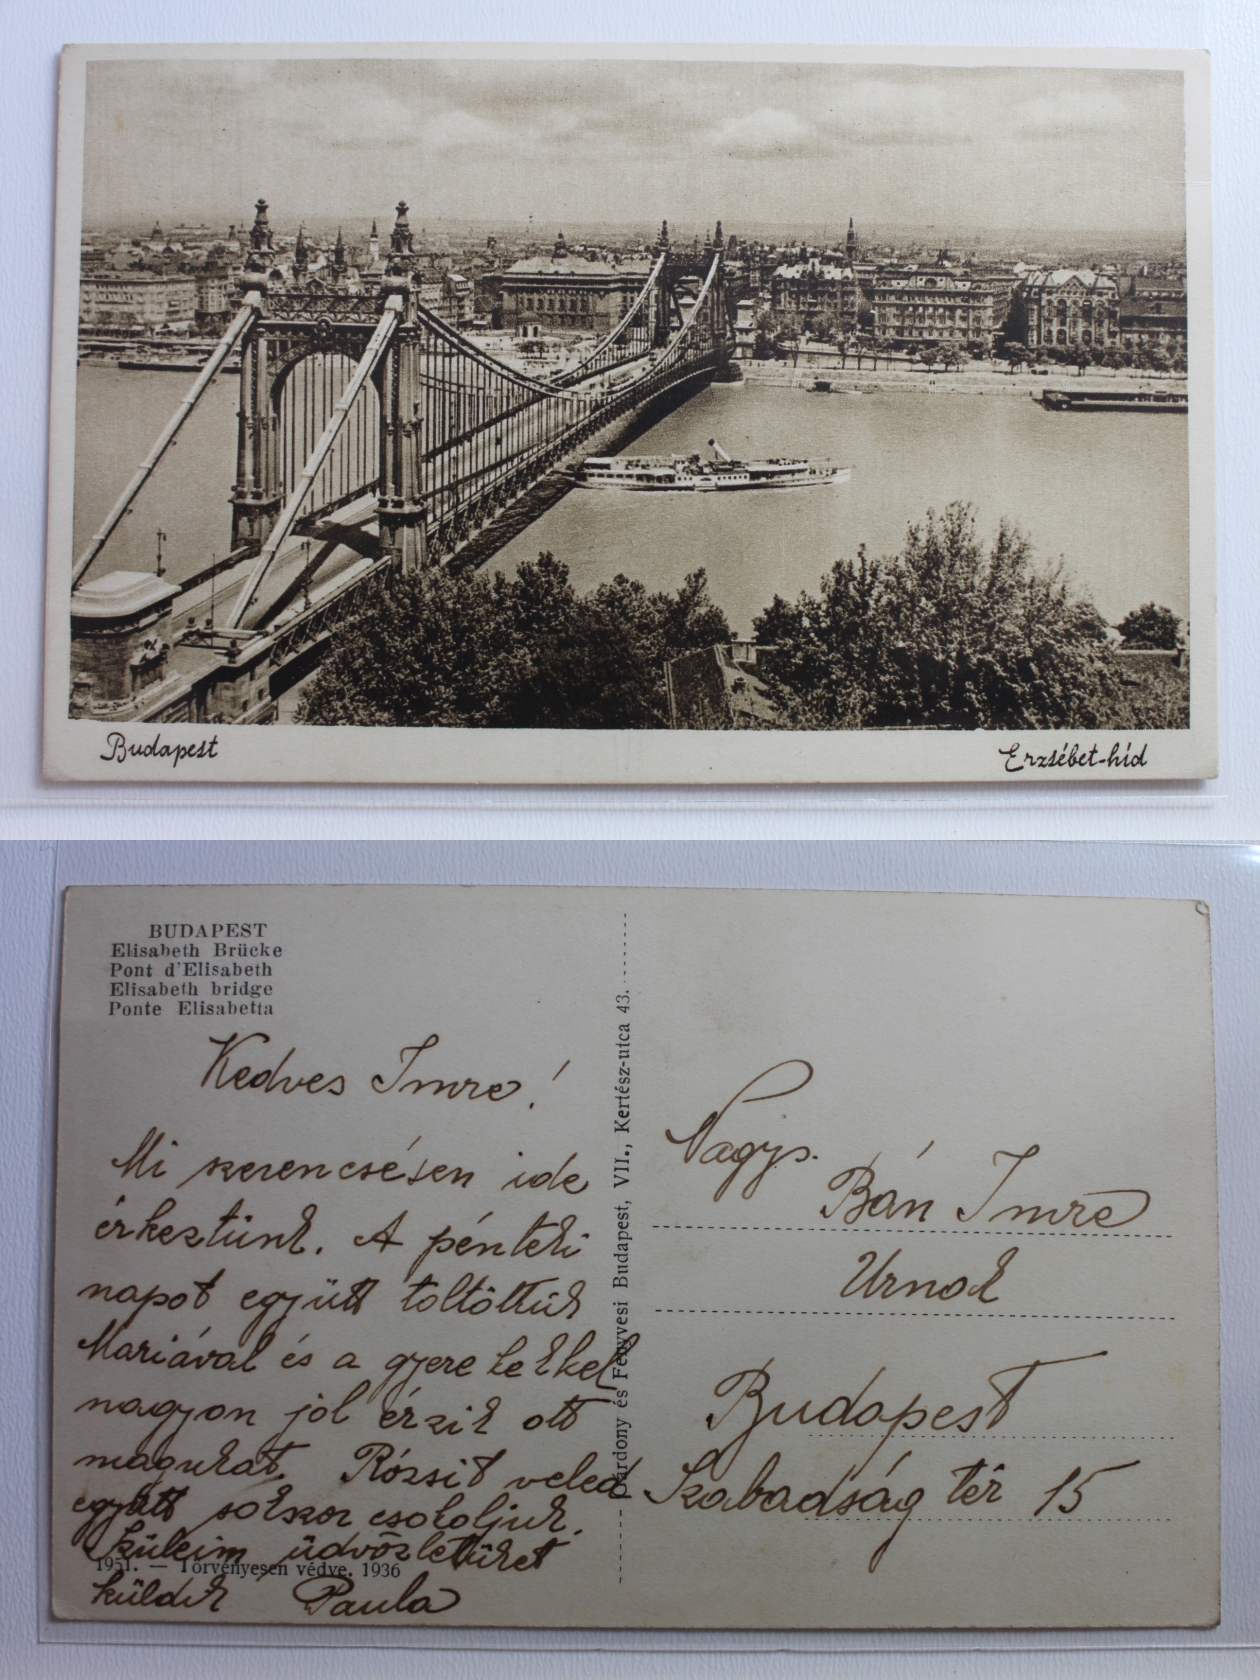 Budapest
Erzsébet-híd
BUDAPEST
Elisabeth Brücke
Pont d'Elisabeth
Elisabeth bridge
Ponte Elisabetta
Kedves Imre!
Mi szerencsésen ide
érkeztünk. A pénteki
napot együtt töltöttük
Mariával és a gyerekekkel
nagyon jól érzik ott
magukat. Rózsit veled
együtt sokszor csókoljuk.
Szüleim üdvözletüket
küldik Paula
1951. — Törvényesen védve. 1936
Bárdony és Fenyvesi Budapest, VII., Kertész-utca 43.
Nagys.
Bán Imre
Urnak
Budapest
Szabadság tér 15